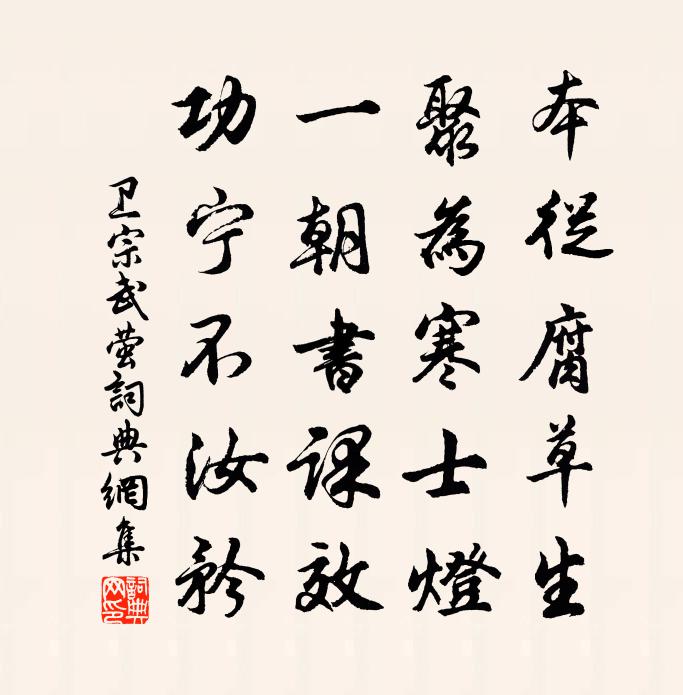 本從腐草生
聚為寒士燈
一朝書課效
功宁不汝矜
卫宗武萤詞典網集
詞典網印